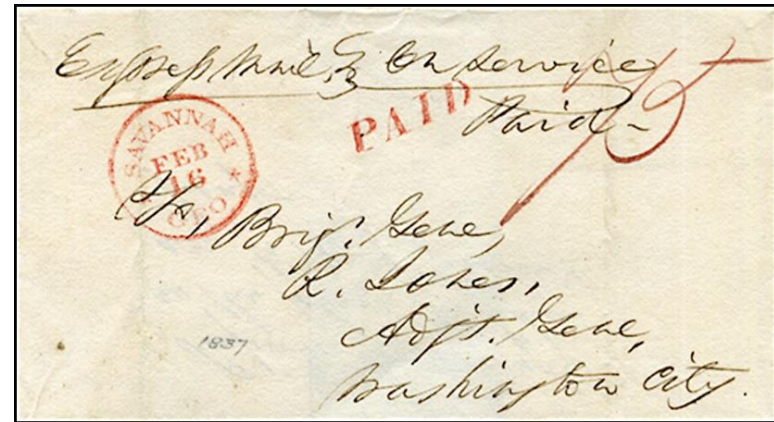 Express Mail, On Service
Paid
PAID
75
SAVANNAH
FEB
16
GEO
To, Brigr. Genl,
R. Jones,
Adjt. Genl,
Washington City.
1837